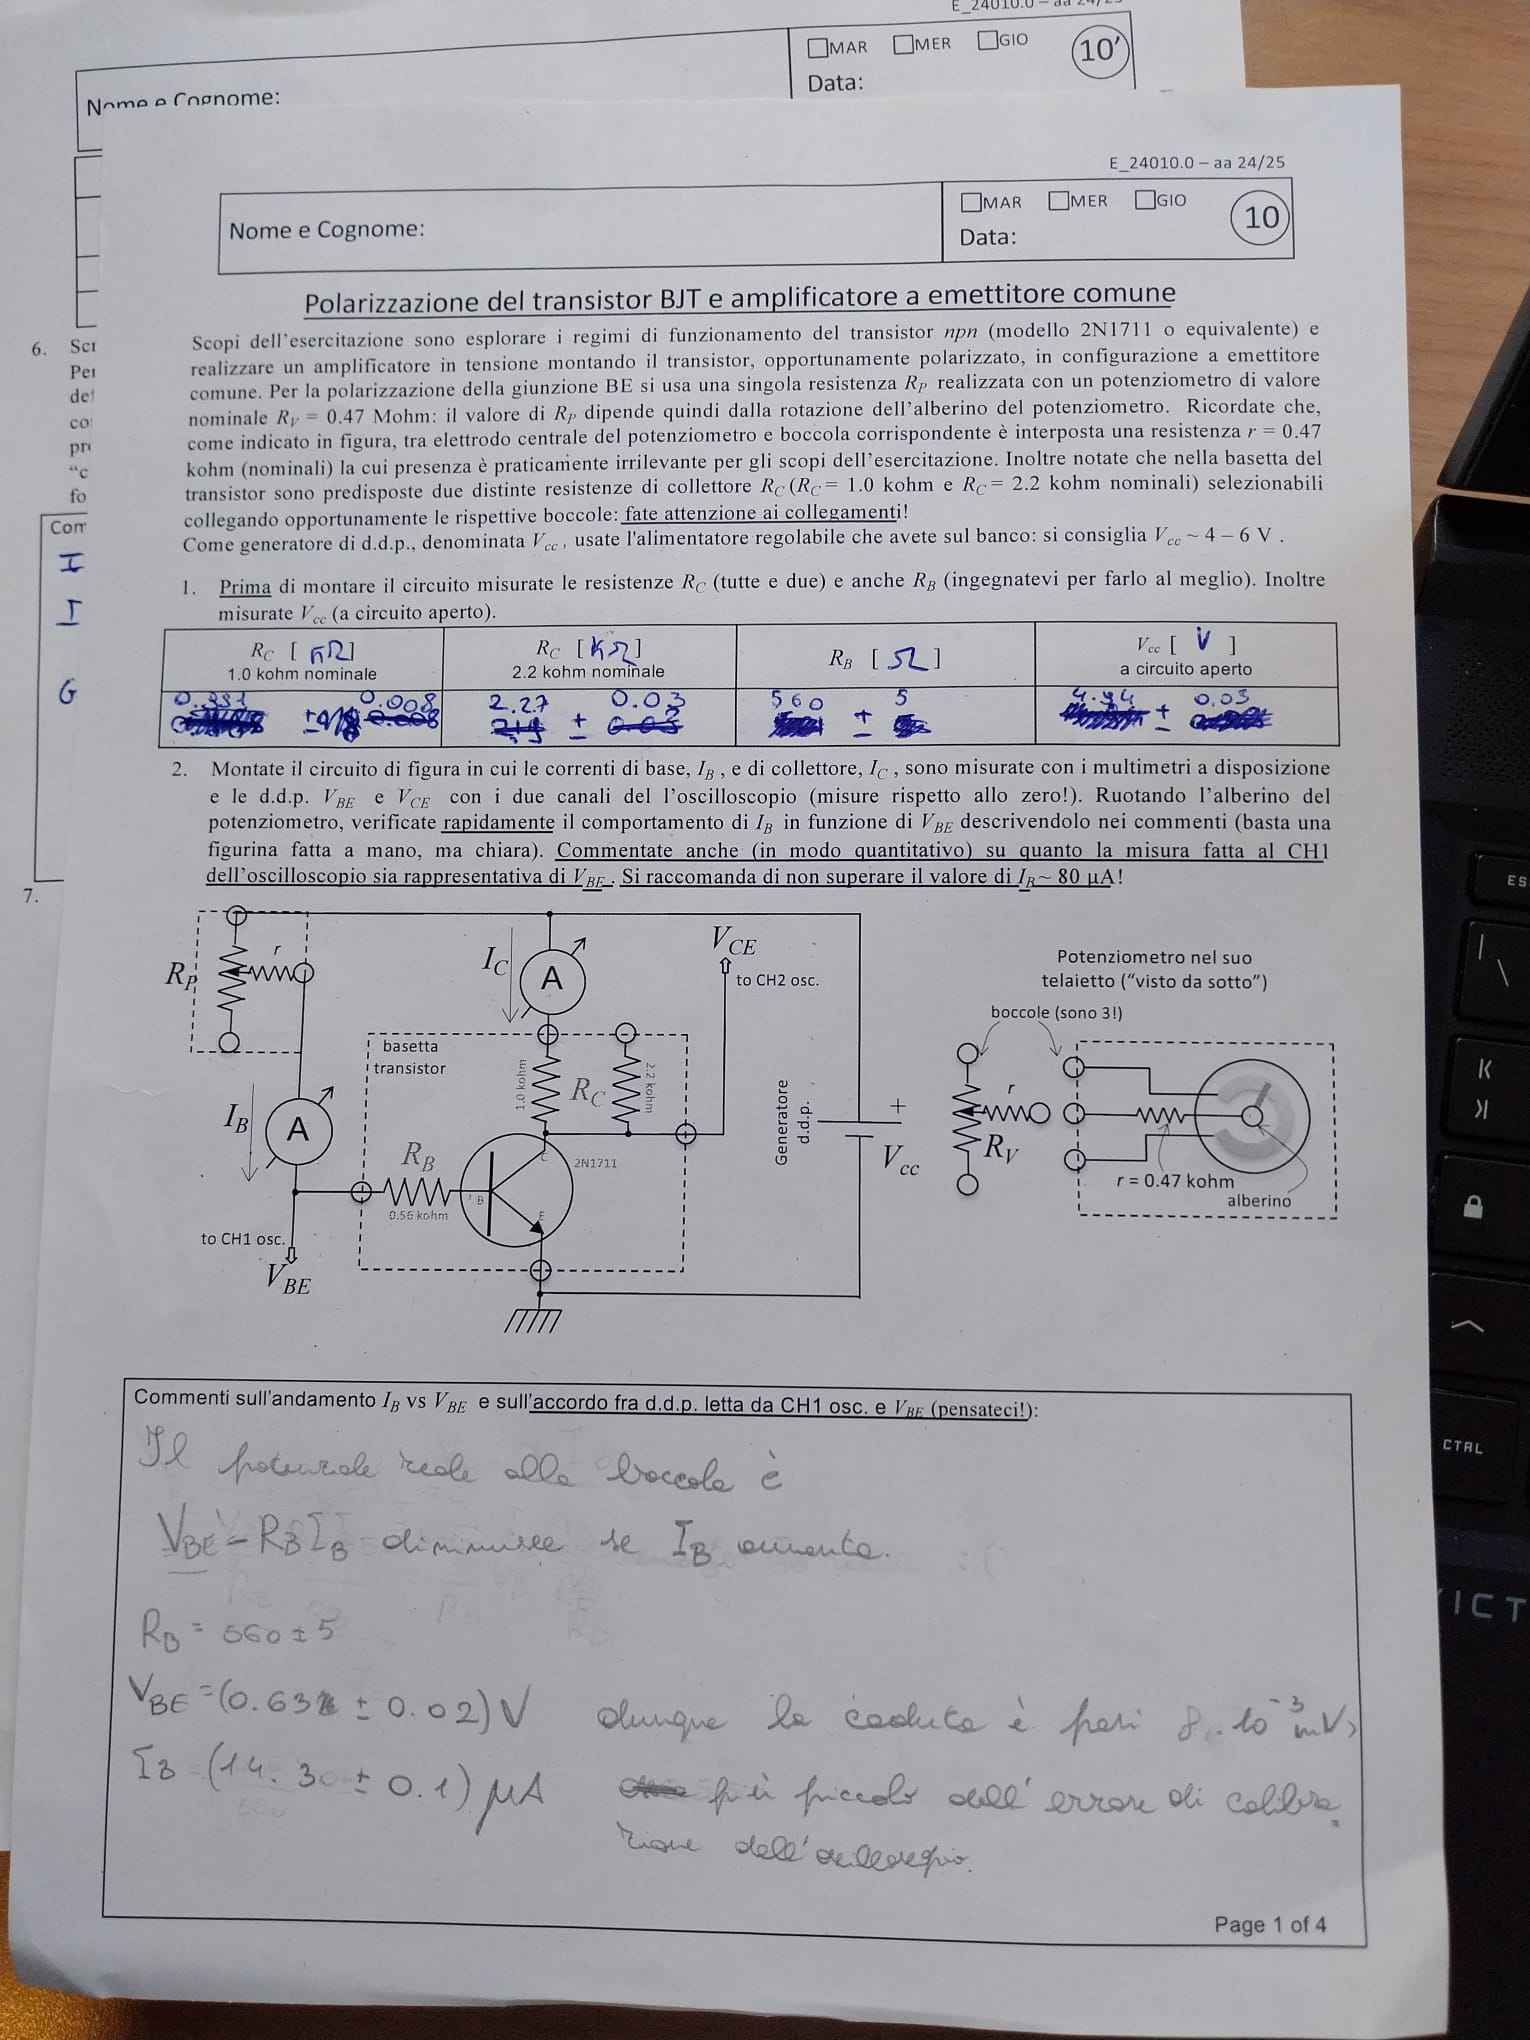 E_24010.0 – aa 24/25
MAR MER GIO
10'
Data:
Nome e Cognome:
E_24010.0 – aa 24/25
MAR MER GIO
10
Nome e Cognome:
Data:
Polarizzazione del transistor BJT e amplificatore a emettitore comune
Scopi dell'esercitazione sono esplorare i regimi di funzionamento del transistor npn (modello 2N1711 o equivalente) e
realizzare un amplificatore in tensione montando il transistor, opportunamente polarizzato, in configurazione a emettitore
comune. Per la polarizzazione della giunzione BE si usa una singola resistenza RP realizzata con un potenziometro di valore
nominale RV = 0.47 Mohm: il valore di RP dipende quindi dalla rotazione dell'alberino del potenziometro. Ricordate che,
come indicato in figura, tra elettrodo centrale del potenziometro e boccola corrispondente è interposta una resistenza r = 0.47
kohm (nominali) la cui presenza è praticamente irrilevante per gli scopi dell'esercitazione. Inoltre notate che nella basetta del
transistor sono predisposte due distinte resistenze di collettore RC (RC = 1.0 kohm e RC = 2.2 kohm nominali) selezionabili
collegando opportunamente le rispettive boccole: fate attenzione ai collegamenti!
Come generatore di d.d.p., denominata Vcc , usate l'alimentatore regolabile che avete sul banco: si consiglia Vcc ~ 4 – 6 V .
1. Prima di montare il circuito misurate le resistenze RC (tutte e due) e anche RB (ingegnatevi per farlo al meglio). Inoltre
misurate Vcc (a circuito aperto).
RC [ kΩ ] RC [ KΩ ] RB [ Ω ] Vcc [ V ]
1.0 kohm nominale 2.2 kohm nominale a circuito aperto
0.008 2.27 0.03 560 5 4.94 0.03
± ± ± ±
2. Montate il circuito di figura in cui le correnti di base, IB , e di collettore, IC , sono misurate con i multimetri a disposizione
e le d.d.p. VBE e VCE con i due canali del l'oscilloscopio (misure rispetto allo zero!). Ruotando l'alberino del
potenziometro, verificate rapidamente il comportamento di IB in funzione di VBE descrivendolo nei commenti (basta una
figurina fatta a mano, ma chiara). Commentate anche (in modo quantitativo) su quanto la misura fatta al CH1
dell'oscilloscopio sia rappresentativa di VBE . Si raccomanda di non superare il valore di IB ~ 80 µA!
6. Scr
Per
de
co
pr
"c
fo
Com
I
I
G
7.
RP
r
IC
A
VCE
to CH2 osc.
basetta
transistor
1.0 kohm
RC
2.2 kohm
IB
A
RB
0.56 kohm
B
C
E
2N1711
to CH1 osc.
VBE
Generatore
d.d.p.
+
Vcc
Potenziometro nel suo
telaietto ("visto da sotto")
boccole (sono 3!)
r
RV
r = 0.47 kohm
alberino
Commenti sull'andamento IB vs VBE e sull'accordo fra d.d.p. letta da CH1 osc. e VBE (pensateci!):
Il potenziale reale alla boccola è
VBE – RB IB diminuisce se IB aumenta. :(
RB = 560 ± 5
VBE = (0.63 ± 0.02) V dunque la caduta è pari 8 . 10⁻³ mV,
IB = (14.30 ± 0.1) µA più piccolo dell'errore di calibra
zione dell'oscilloscopio.
Page 1 of 4
ES
\
K
CTRL
VICT